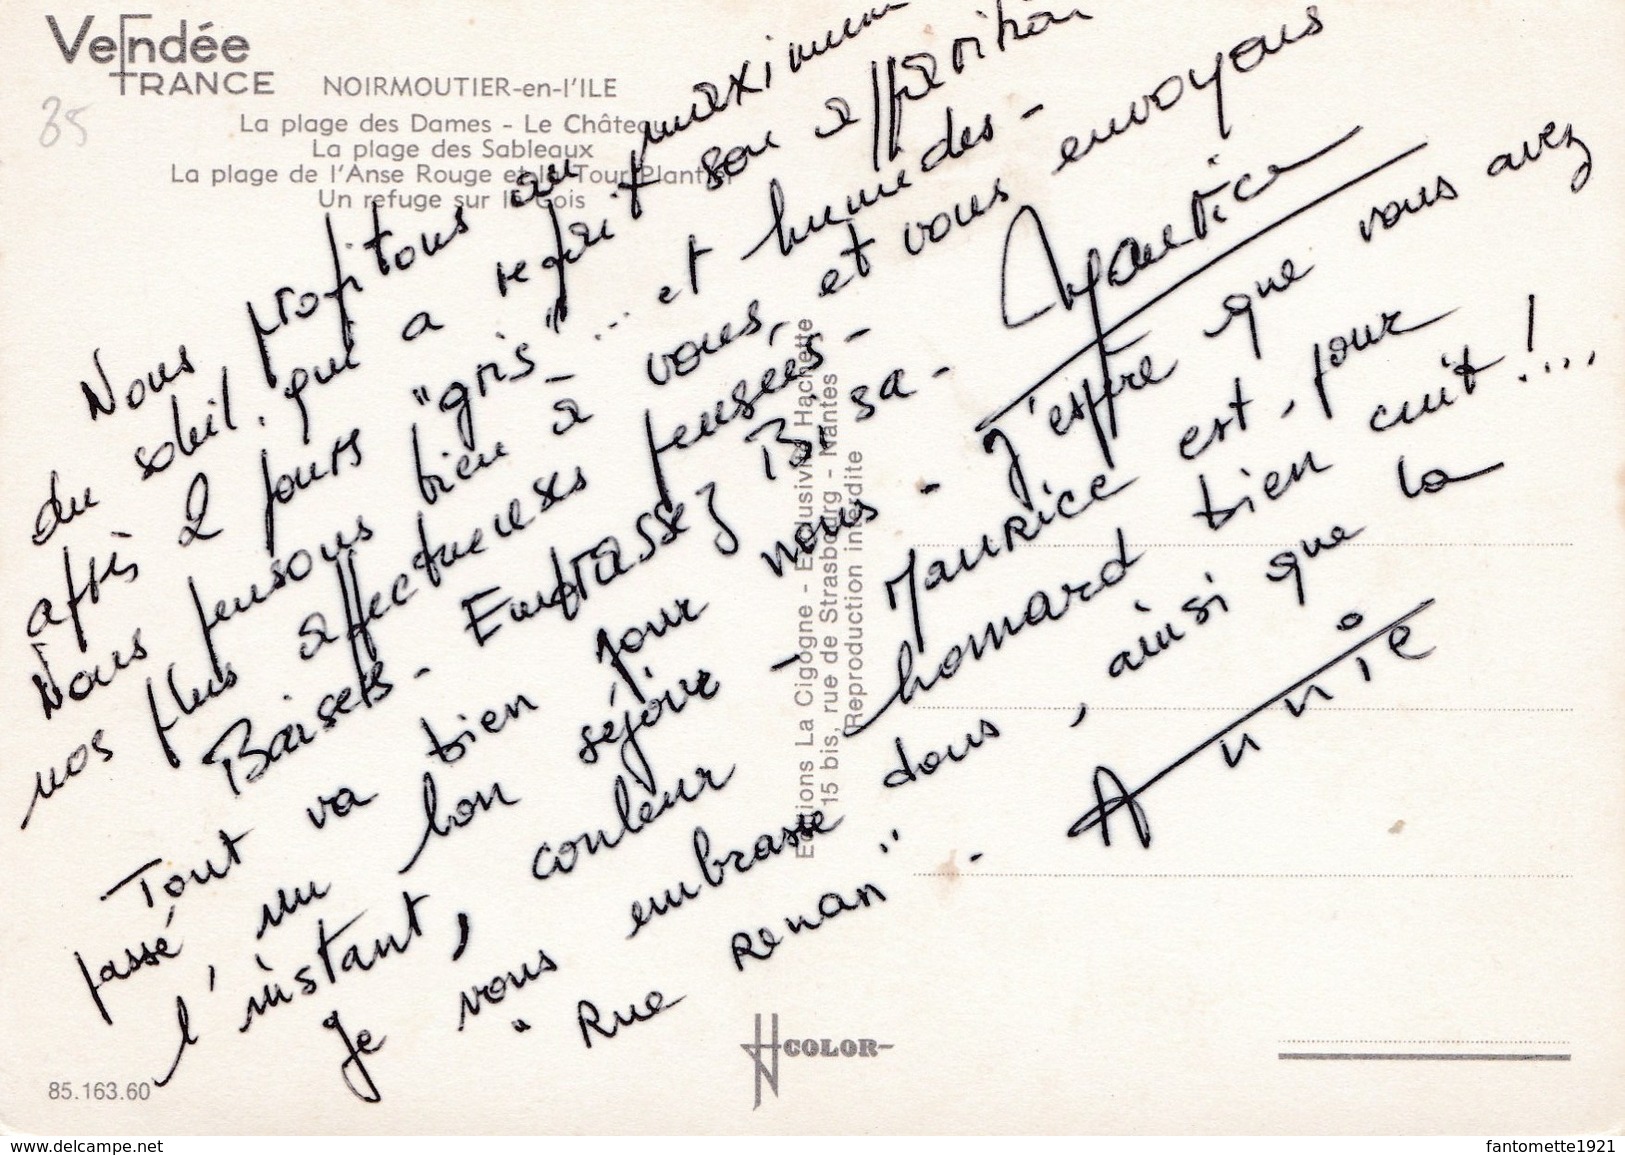 Vendée
FRANCE
NOIRMOUTIER-en-l'ILE
La plage des Dames - Le Château
La plage des Sableaux
La plage de l'Anse Rouge et la Tour Plantier
Un refuge sur le Gois
85
Nous profitons au maximum
du soleil. qui a refait son apparition
après 2 jours "gris"... et humides -
Nous pensons bien à vous, et vous envoyons
nos plus affectueuses pensées -
Baisers - Embrassez Bisa -
Maurice
Tout va bien pour nous - J'espère que vous avez
passé, un bon séjour - Maurice est, pour
l'instant, couleur homard bien cuit !...
Je vous embrasse tous, ainsi que la
"Rue Renan" -
Annie
Editions La Cigogne - Exclusivité Hachette
15 bis, rue de Strasbourg - Nantes
Reproduction interdite
COLOR
85.163.60
www.delcampe.net
fantomette1921